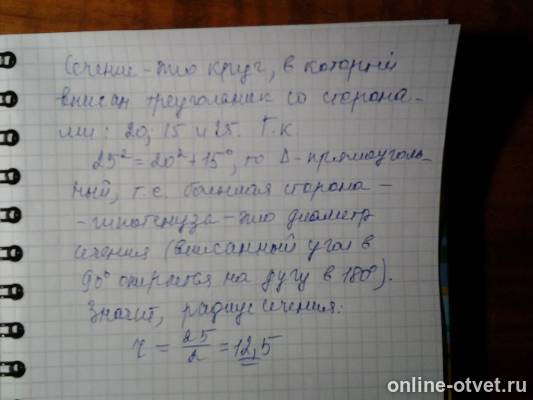 Сечение - это круг, в который
вписан треугольник со сторона-
ми: 20; 15 и 25. Т.к.
25² = 20² + 15², то Δ - прямоуголь-
ный, т.е. большая сторона -
- гипотенуза - это диаметр
сечения (вписанный угол в
90° опирается на дугу в 180°).
Значит, радиус сечения:
r = 25/2 = 12,5
online-otvet.ru